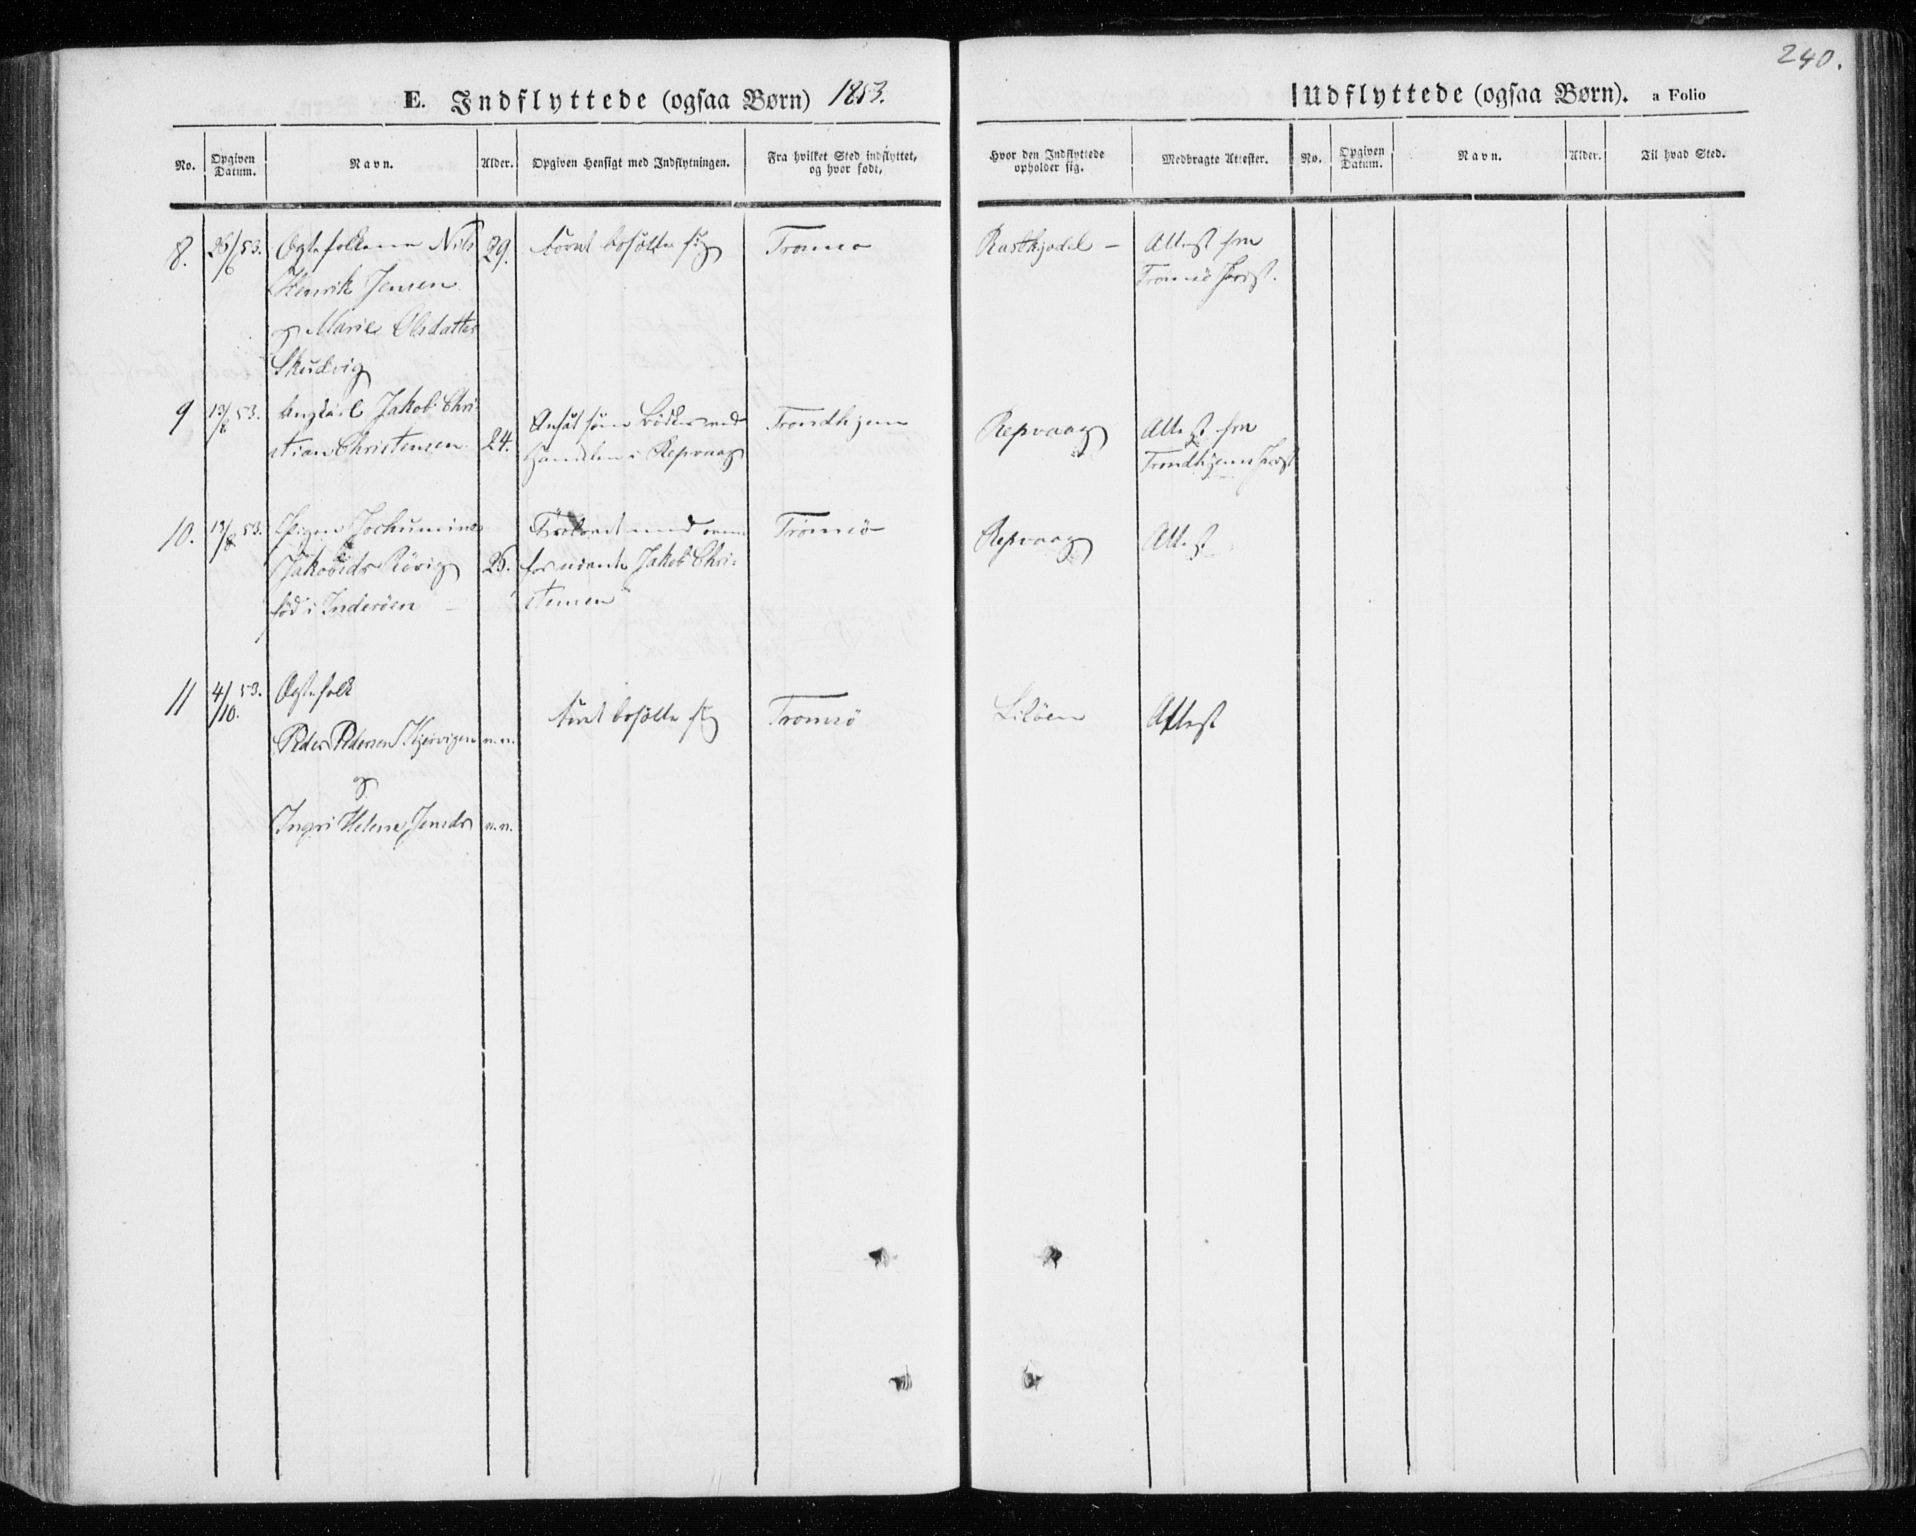 240.
E. Indflyttede (ogsaa Børn) 1853.
Udflyttede (ogsaa Børn). a Folio
No. Opgiven Datum. Navn. Alder. Opgiven Hensigt med Indflytningen. Fra hvilket Sted indflyttet, og hvor født,
Hvor den Indflyttede opholder sig. Medbragte Attester. No. Opgiven Datum. Navn. Alder. Til hvad Sted.
8. 26/6 53. Egtefolkene Nils 29. bosætte sig Tromsø – Attest fra
Henrik Jensen Tromsø
og Marie Olsdatter
Skudvig
9 13/8 53. Ungkarl Jakob Chri- Ansat som Bødker ved Trondhjem Repvaag Attest fra
stian Christensen 24. Handelen i Repvaag Trondhjems
10. 13/8 53. Pigen Jochumine Tromsø Repvaag Attest
Jakobsdr Rørvig 25. Jakob Chri-
fød i Inderøen – stensen
11 4/10. 53. Egtefolk
Peder Pedersen n.n. bosætte sig Tromsø Attest
og
Ingri Helene Jensdr n.n.